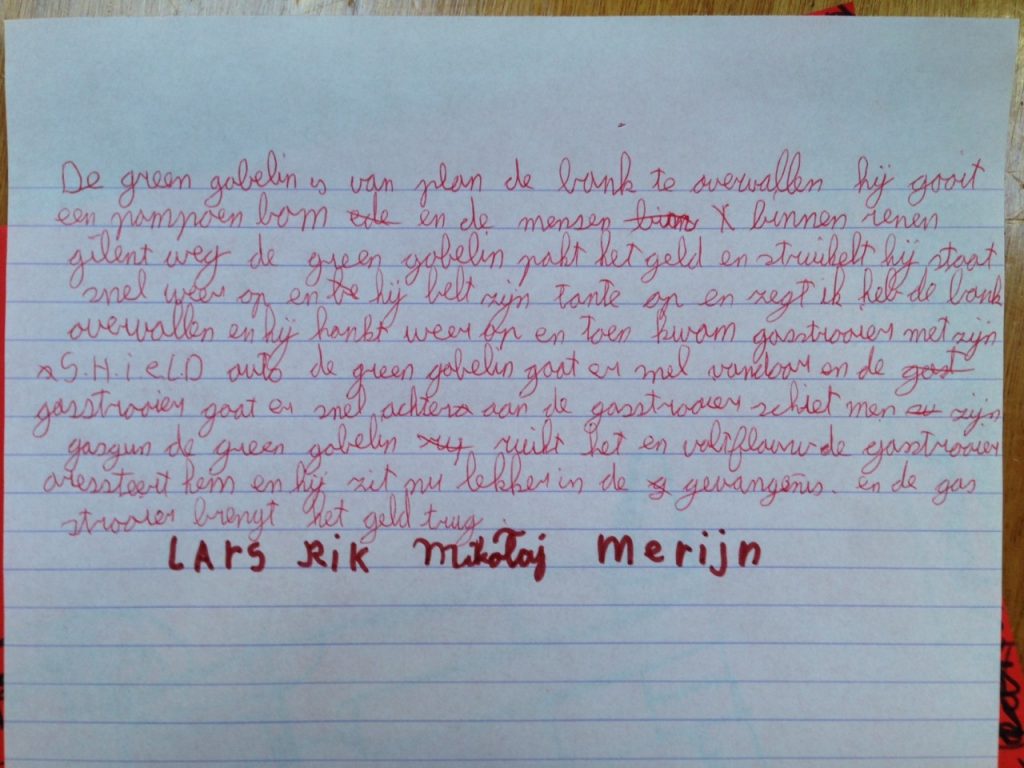 De green gobelin is van plan de bank te overvallen hij gooit
een pompoen bom en de mensen X binnen renen
gilent weg de green gobelin pakt het geld en struikelt hij staat
snel weer op en hij belt zijn tante op en zegt ik heb de bank
overvallen en hij hankt weer op en toen kwam gasstrooier met zijn
S.H.iELD auto de green gobelin gaat er snel vandoor en de
gasstrooier gaat er snel achter aan de gasstrooier schiet men zijn
gasgun de green gobelin ruikt het en valtflauw de gasstrooier
aressteert hem en hij zit nu lekker in de gevangenis. en de gas
strooier brengt het geld trug.
LArS RiK Mikołaj Merijn